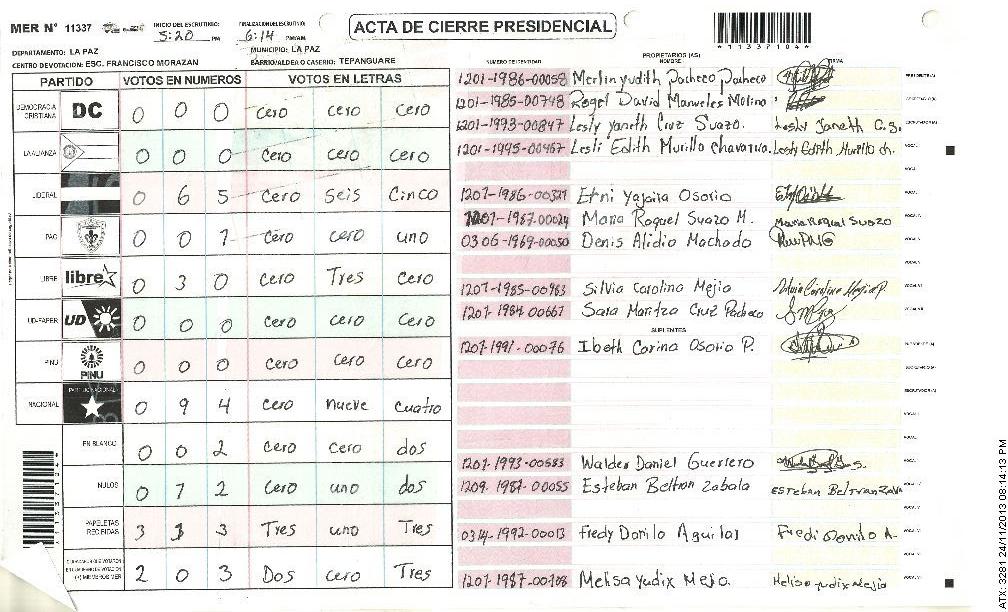 MER N° 11337
INICIO DEL ESCRUTINIO: 5:20 PM
FINALIZACION DEL ESCRUTINIO: 6:14 PM/AM
ACTA DE CIERRE PRESIDENCIAL
*11337104*
DEPARTAMENTO: LA PAZ
MUNICIPIO: LA PAZ
CENTRO DE VOTACION: ESC. FRANCISCO MORAZAN
BARRIO/ALDEA O CASERIO: TEPANGUARE
PARTIDO VOTOS EN NUMEROS VOTOS EN LETRAS
DEMOCRACIA CRISTIANA DC 0 0 0 cero cero cero
LA ALIANZA 0 0 0 cero cero cero
LIBERAL 0 6 5 cero Seis Cinco
PAC 0 0 1 cero cero uno
LIBRE libre 0 3 0 cero Tres Cero
UD-FAPER UD 0 0 0 cero cero cero
PINU PINU 0 0 0 cero cero cero
NACIONAL PARTIDO NACIONAL 0 9 4 cero nueve cuatro
EN BLANCO 0 0 2 cero cero dos
NULOS 0 1 2 cero uno dos
PAPELETAS RECIBIDAS 3 1 3 Tres uno Tres
(+) MIEMBROS MER 2 0 3 Dos cero Tres
NUMERO DE IDENTIDAD PROPIETARIOS (AS) NOMBRE FIRMA
1201-1986-00058 Merlin yudith Pacheco Pacheco PRESIDENTE(A)
1201-1985-00748 Rogel David Manueles Molino SECRETARIO(A)
1201-1993-00847 Lesly yaneth Cruz Suazo. Lesly Janeth C.S. ESCRUTADOR(A)
1201-1995-00467 Lesli Edith Murillo chavarria. Lesly Edith Murillo ch. VOCAL I
1201-1986-00321 Etni yajaira Osorio
1201-1987-00024 Maria Roquel Suazo M. Maria Raquel Suazo
0306-1969-00050 Denis Alidio Machado
1201-1985-00963 Silvia Carolina Mejia Silvia Carolina Mejia P.
1201-1984-00667 Sara Maritza Cruz Pacheco
SUPLENTES
1201-1991-00076 Ibeth Corina Osorio P. PRESIDENTE(A)
SECRETARIO(A)
ESCRUTADOR(A)
1201-1993-00583 Walder Daniel Guerrero
1209-1987-00055 Esteban Beltron Zabala Esteban Beltran Zava
0314-1992-00013 Fredy Donilo Aguilar Fredi Danilo A.
1201-1987-00108 Melisa Yudix Mejo. Melisa yudix Mejia
ATX: 3281 24/11/2013 08:14:13 PM